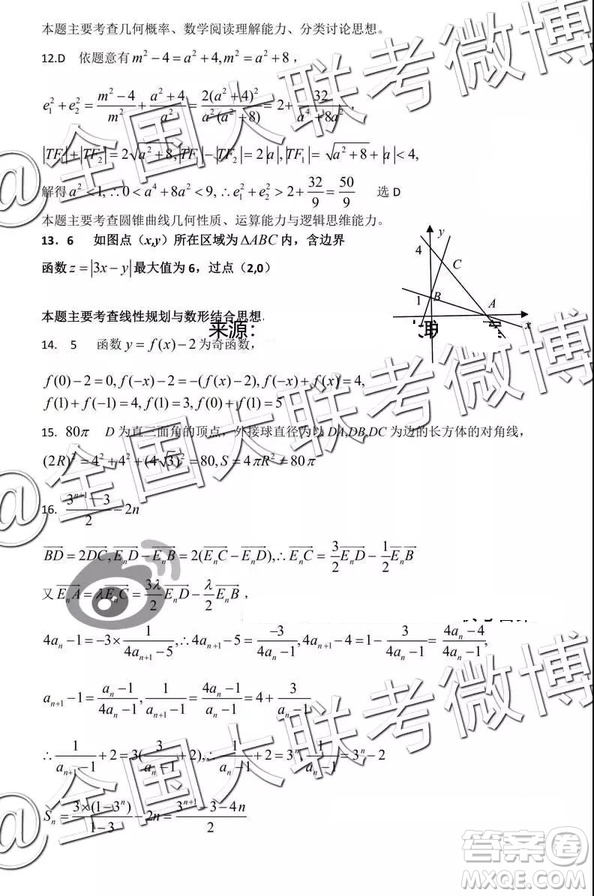 本题主要考查几何概率、数学阅读理解能力、分类讨论思想。
12.D 依题意有 m² − 4 = a² + 4, m² = a² + 8 ,
e₁² + e₂² = (m² − 4)/m² + (a² + 4)/a² = 2(a² + 4)²/(a²(a² + 8)) = 2 + 32/(a⁴ + 8a²) ,
|TF₁| + |TF₂| = 2√(a² + 8), |TF₁ − TF₂| = 2|a|, |TF₁| = √(a² + 8) + |a| < 4,
解得 a² < 1, ∴ 0 < a⁴ + 8a² < 9, ∴ e₁² + e₂² > 2 + 32/9 = 50/9 选 D
本题主要考查圆锥曲线几何性质、运算能力与逻辑思维能力。
13. 6 如图点（x,y）所在区域为 ΔABC 内，含边界
函数 z = |3x − y| 最大值为 6，过点（2,0）
y
4
C
1
B
A
x
本题主要考查线性规划与数形结合思想.
来源：
14. 5 函数 y = f(x) − 2 为奇函数，
f(0) − 2 = 0, f(−x) − 2 = −(f(x) − 2), f(−x) + f(x) = 4,
f(1) + f(−1) = 4, f(1) = 3, f(0) + f(1) = 5
15. 80π D 为直三面角的顶点，外接球直径内以 DA,DB,DC 为边的长方体的对角线，
(2R)² = 4² + 4² + (4√3)² = 80, S = 4πR² = 80π
16. (3ⁿ⁺¹ − 3)/2 − 2n
BD = 2DC, EₙD − EₙB = 2(EₙC − EₙD), ∴ EₙC = 3/2 EₙD − 1/2 EₙB
又 EₙA = λEₙC = 3λ/2 EₙD − λ/2 EₙB ,
4aₙ − 1 = −3 × 1/(4aₙ₊₁ − 5), ∴ 4aₙ₊₁ − 5 = −3/(4aₙ − 1), ∴ 4aₙ₊₁ − 4 = (4aₙ − 4)/(4aₙ − 1),
aₙ₊₁ − 1 = (aₙ − 1)/(4aₙ − 1), 1/(aₙ₊₁ − 1) = (4aₙ − 1)/(aₙ − 1) = 4 + 3/(aₙ − 1)
∴ 1/(aₙ₊₁ − 1) + 2 = 3(1/(aₙ − 1) + 2), ∴ 1/(aₙ − 1) + 2 = 3ⁿ, 1/(aₙ − 1) = 3ⁿ − 2
Sₙ = 3 × (1 − 3ⁿ)/(1 − 3) − 2n = (3ⁿ⁺¹ − 3 − 4n)/2
@全国大联考微博
@全国大联考微博
@全国大联考微博
答案圈
MXQE.COM